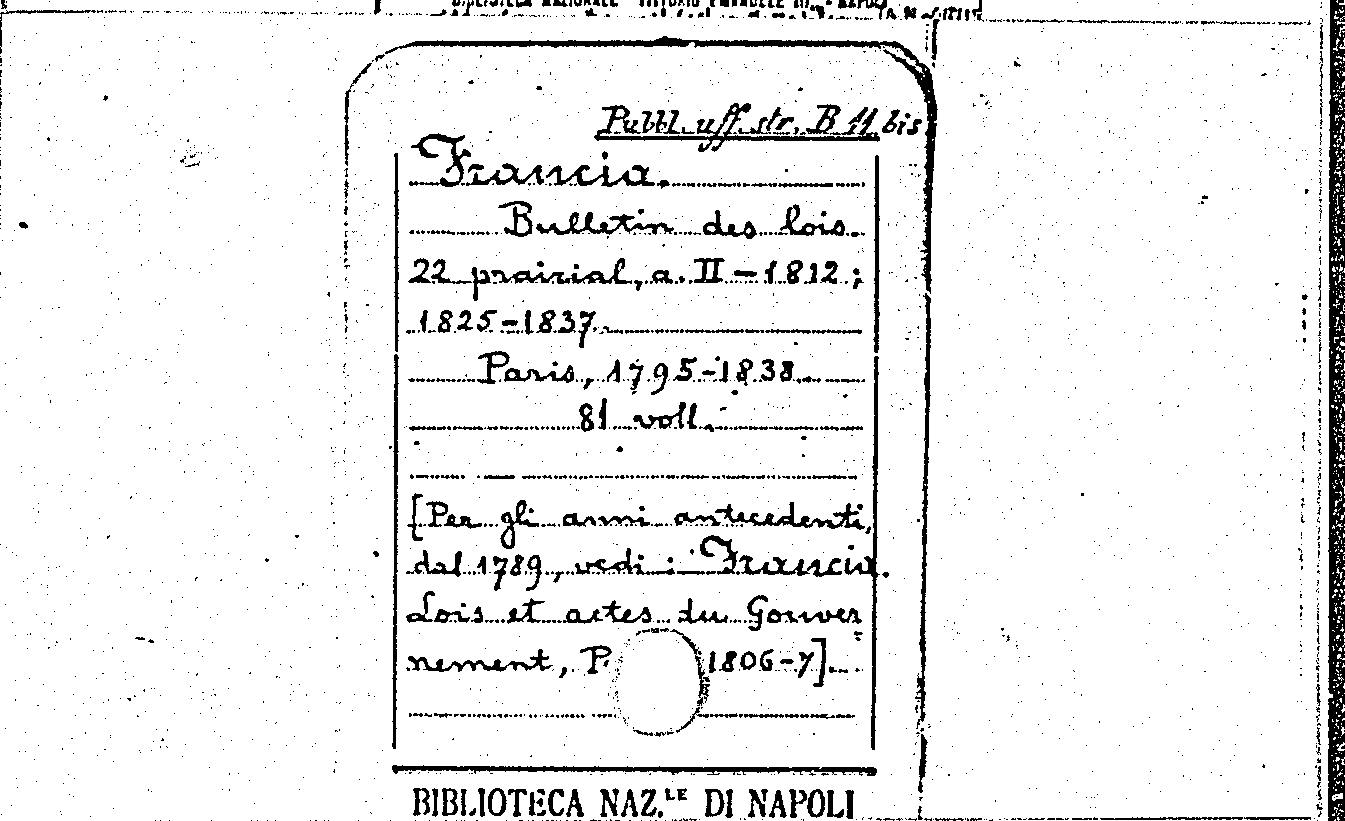 BIBLIOTECA NAZIONALE VITTORIO EMANUELE III - NAPOLI
Pubbl. uff. str. B 11 bis
Francia.
Bulletin des lois.
22 prairial, a. II - 1812;
1825-1837.
Paris, 1795-1838.
81 voll.
[Per gli anni antecedenti,
dal 1789, vedi: Francia.
Lois et actes du Gouver
nement, P. 1806-7].
BIBLIOTECA NAZ.LE DI NAPOLI